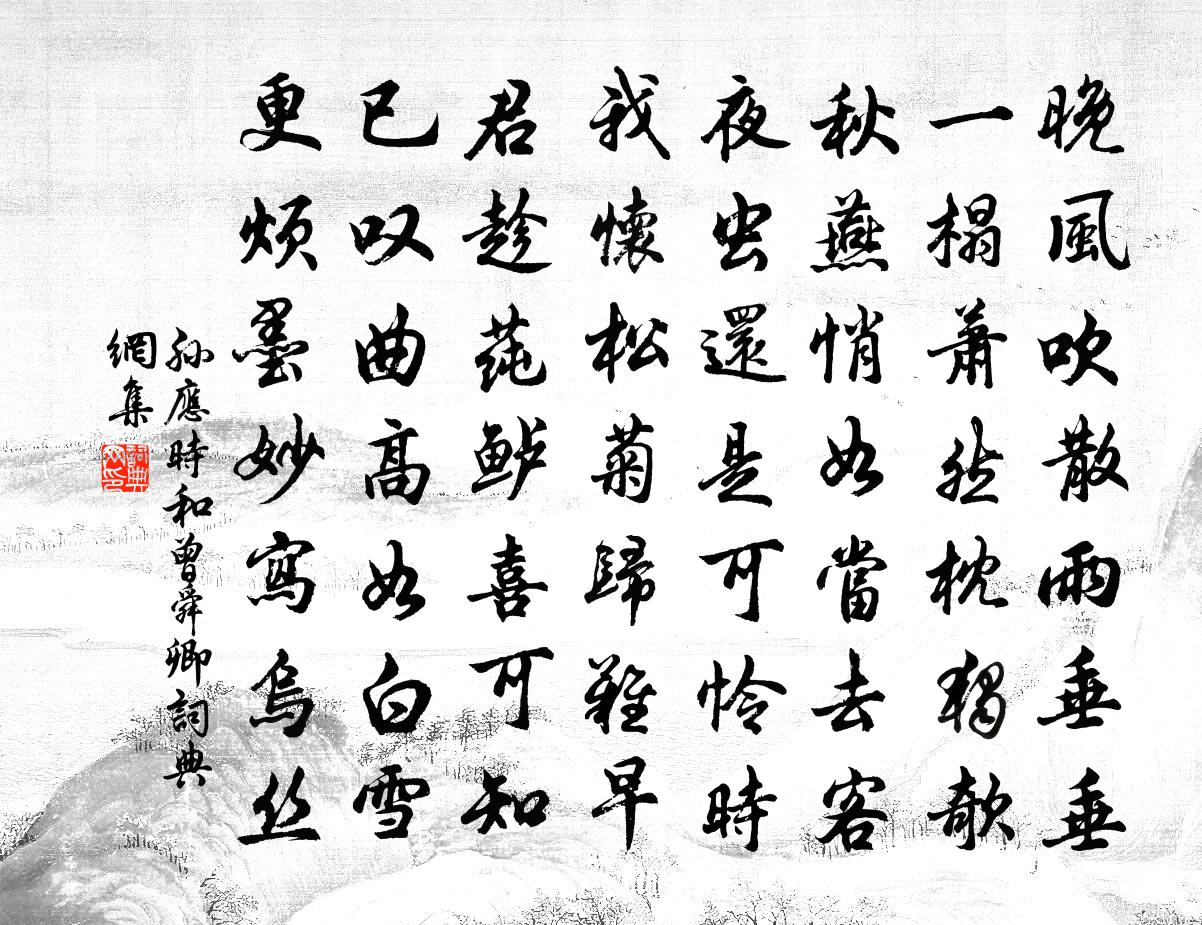 晚風吹散雨垂垂
一榻蕭然枕獨欹
秋燕悄如當去客
夜虫還是可怜時
我懷松菊歸難早
君趁莼鲈喜可知
已叹曲高如白雪
更烦墨妙寫烏丝
孙應時和曾舜卿詞典
網集
詞典网印